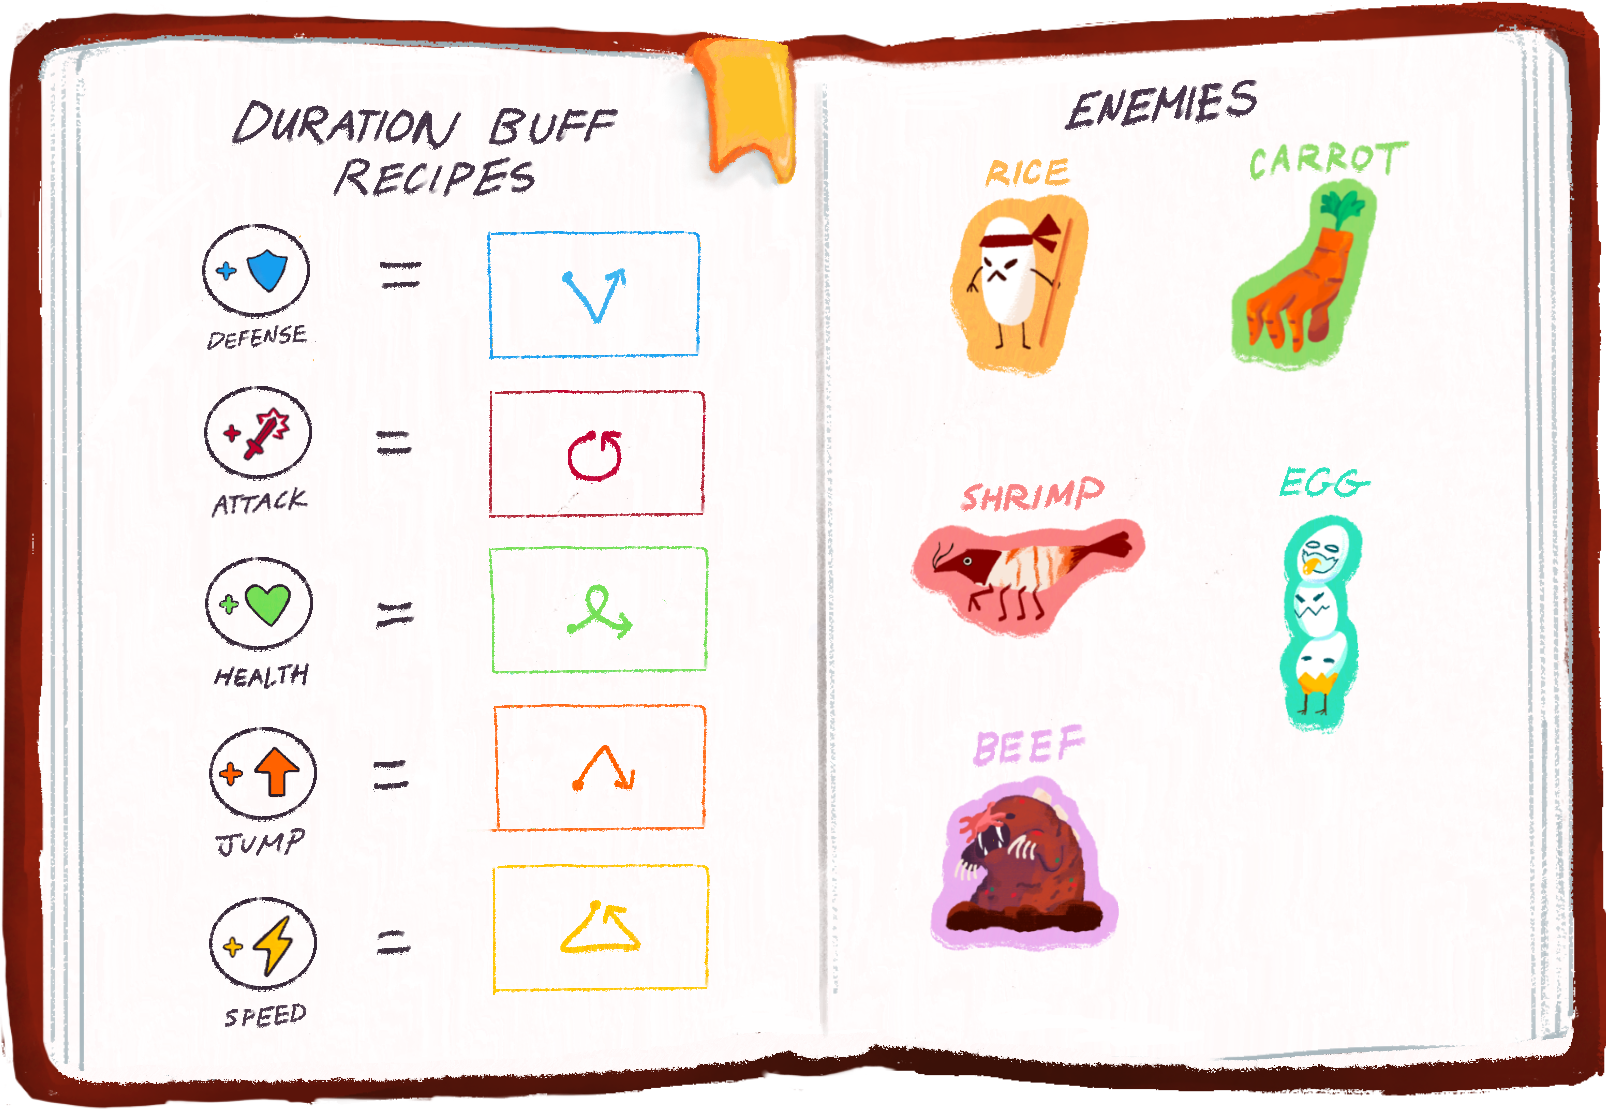 DURATION BUFF
RECIPES
+ =
DEFENSE
+ =
ATTACK
+ =
HEALTH
+ =
JUMP
+ =
SPEED
ENEMIES
RICE
CARROT
SHRIMP
EGG
BEEF